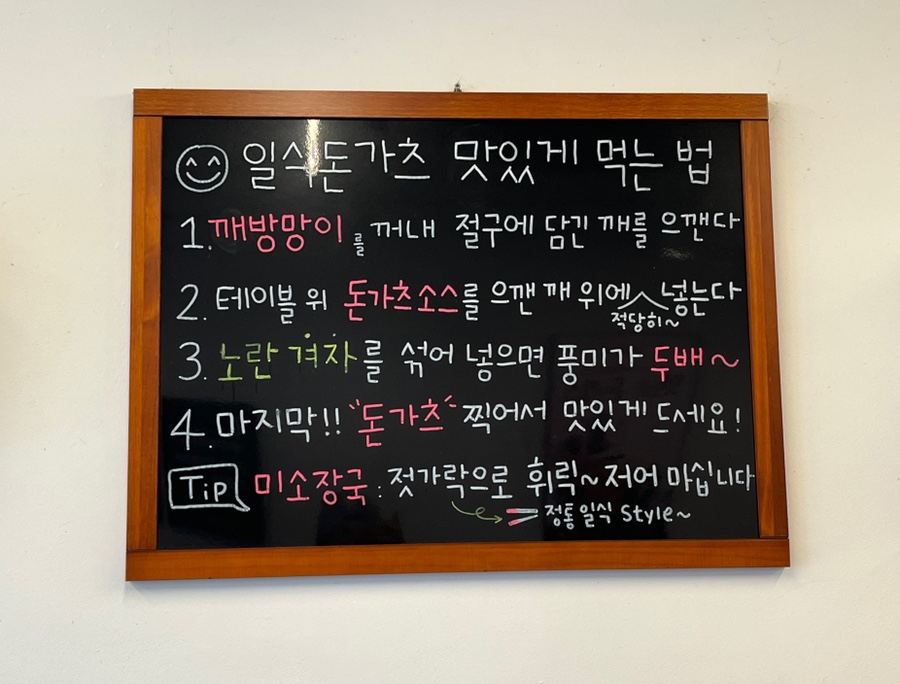 일식돈가츠 맛있게 먹는 법
1. 깨방망이를 꺼내 절구에 담긴 깨를 으깬다
2. 테이블 위 돈가츠소스를 으깬 깨 위에 넣는다
적당히~
3. 노란 겨자를 섞어 넣으면 풍미가 두배~
4. 마지막!! "돈가츠" 찍어서 맛있게 드세요!
Tip 미소장국 : 젓가락으로 휘릭~ 저어 마십니다
정통 일식 Style~